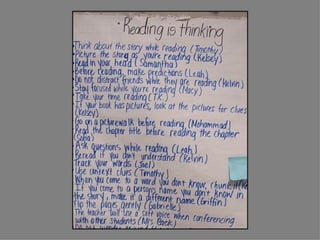 • Reading is thinking
• Think about the story while reading (Timothy)
• Picture the story as you're reading (Kelsey)
• Read in your head (Samantha)
• Before reading, make predictions (Leah)
• Do not distract friends while they are reading (Kelvin)
• Stay focused while you're reading (Macy)
• Take your time reading (T.K.)
• If your book has pictures, look at the pictures for clues
(Kelsey)
• Go on a picturewalk before reading (Mohammad)
• Read the chapter title before reading the chapter
• Ask questions while reading (Leah)
• Reread if you don't understand (Kelvin)
• Track your words (Joel)
• Use context clues (Timothy)
• When you come to a word you don't know, chunk it
• If you come to a person's name you don't know in
the story, make it a different name (Griffin)
• Flip the pages gently (Gabrielle)
• The teacher will use a soft voice when conferencing
with other students (Mrs. Back)